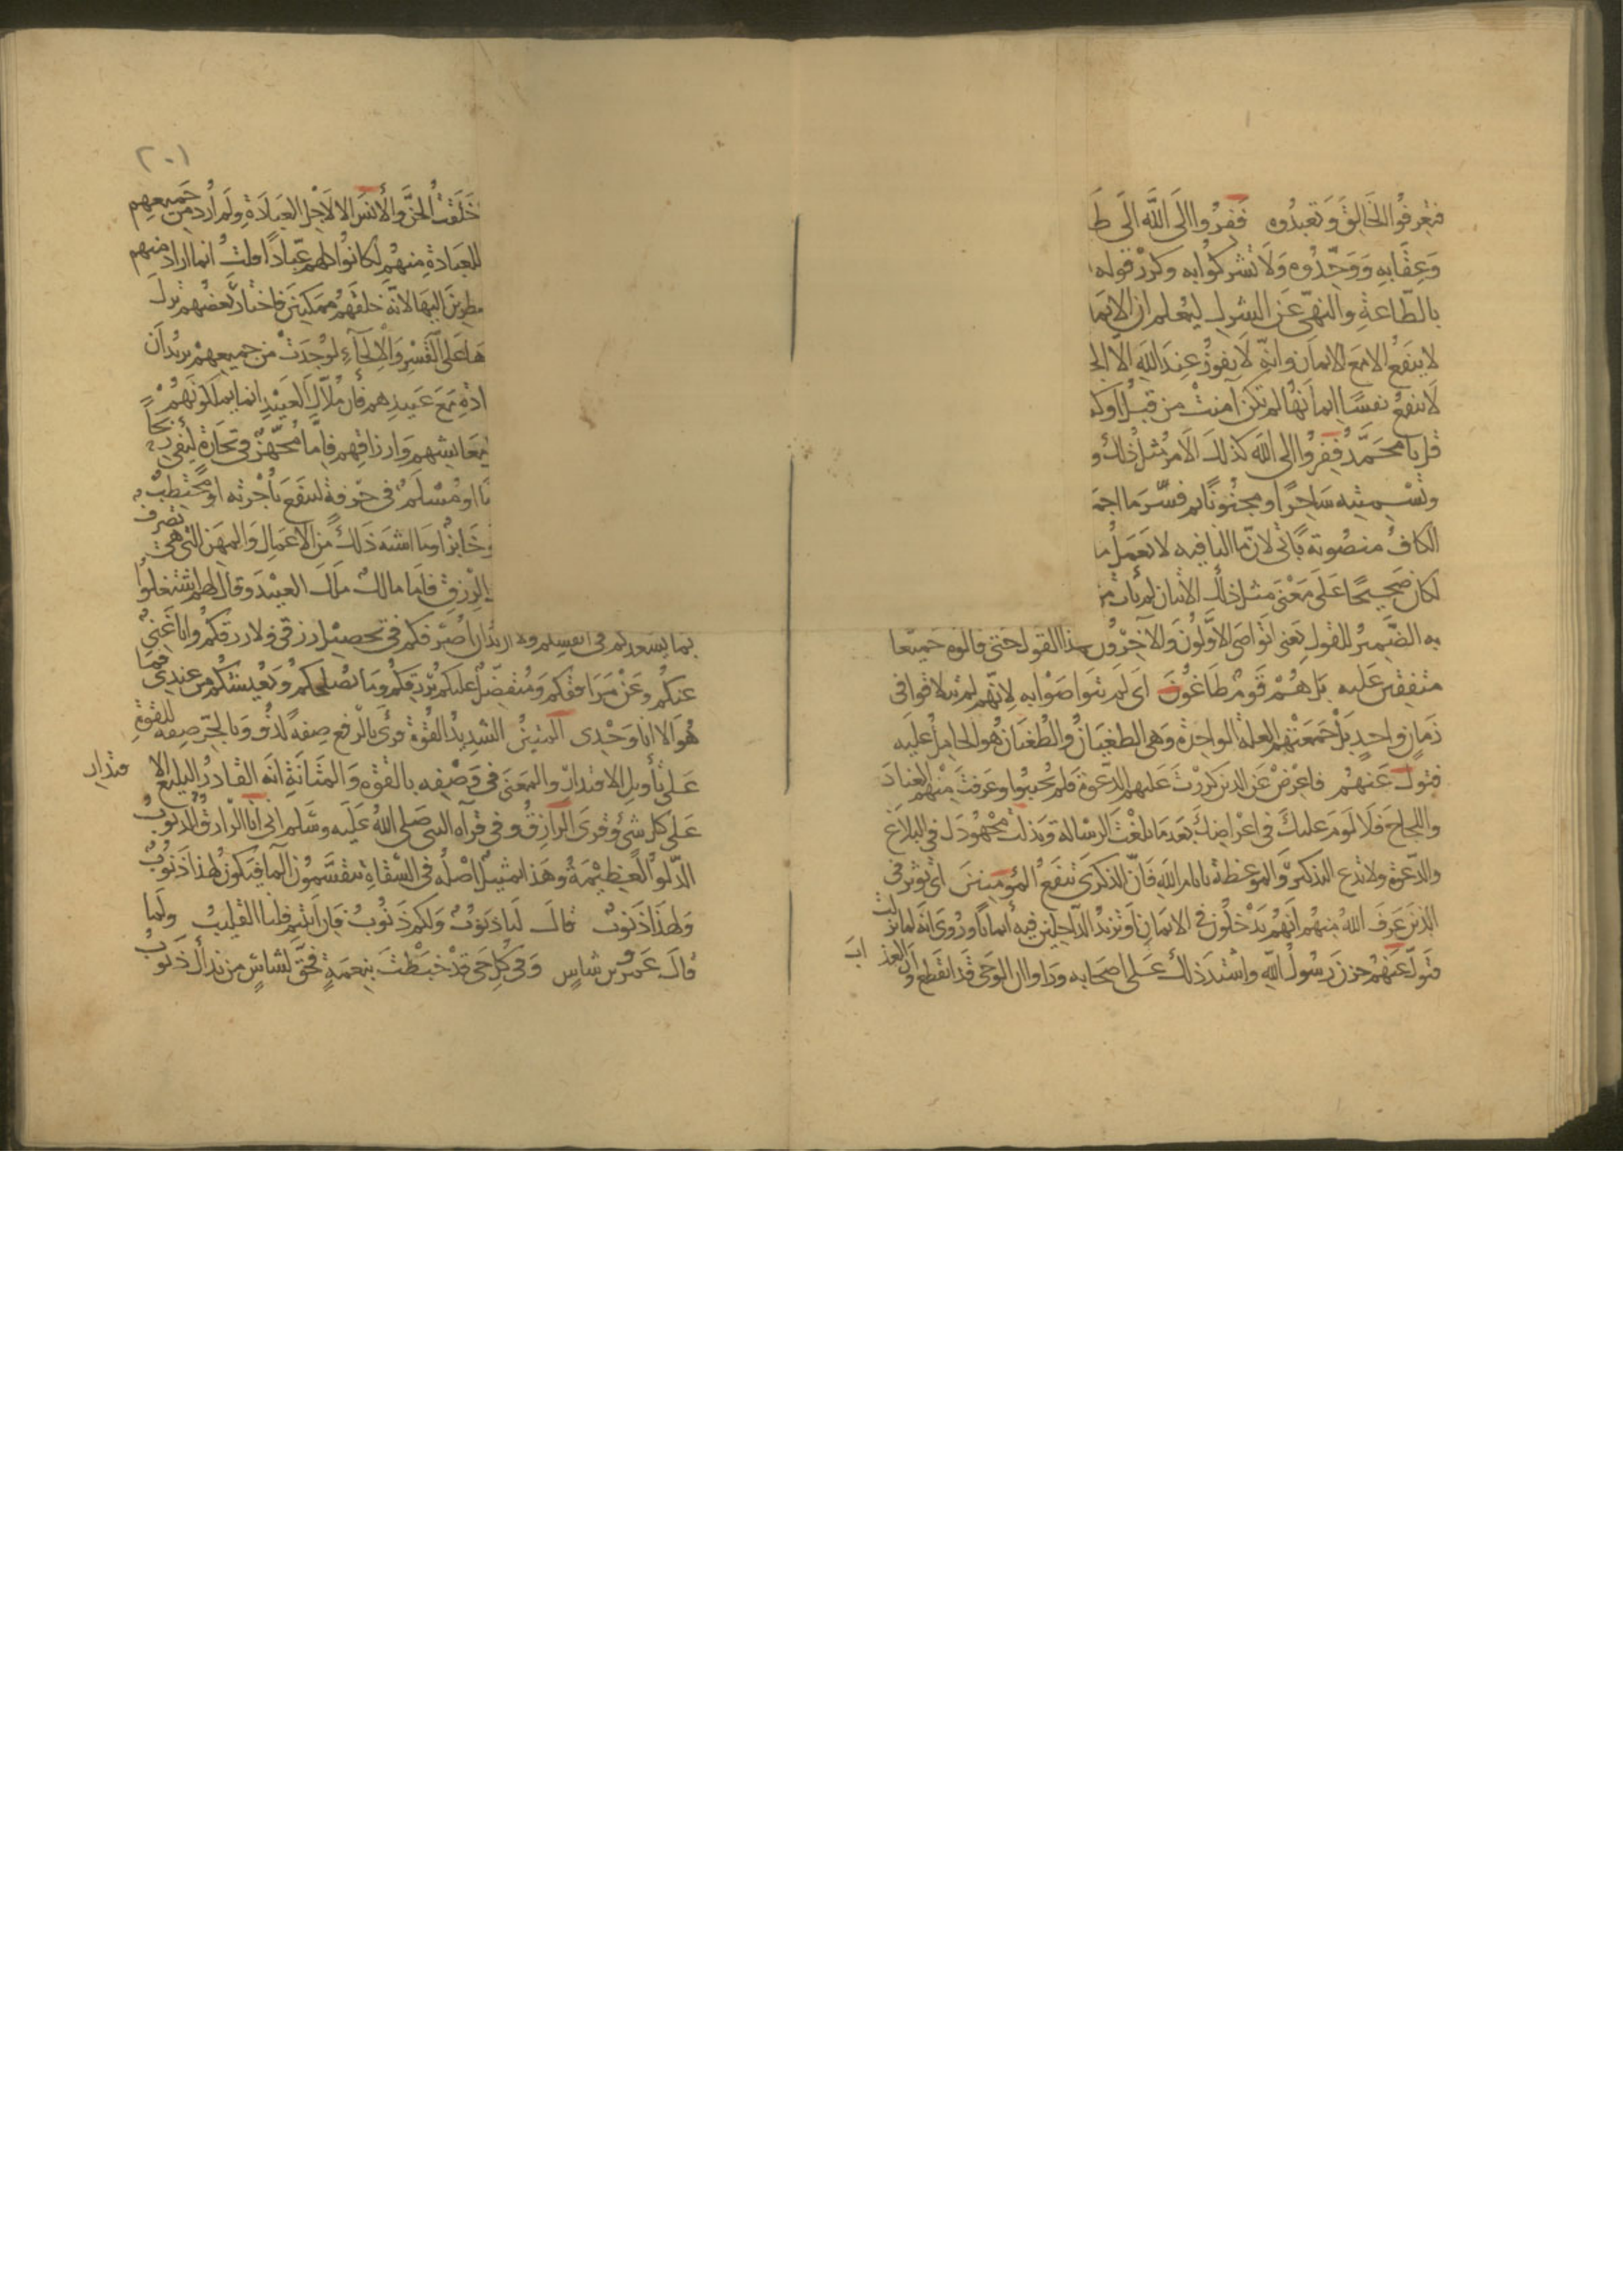 فتعرفوا الخالق وتعبدوه ففروا الى الله الى ط
وعقابه ووحدوه ولا تشركوا به وكرر قوله
بالطاعة والنهى عن الشرك ليعلم ان الايما
لا ينفع الا مع الايمان وانه لا يفوز عند الله الا الج
لا ينفع نفسا ايمانها لم تكن آمنت من قبل او ك
قل يا محمد ففروا الى الله كذلك الامر مثل ذلك و
وتسميته ساحرا او مجنونا ثم فسر ما اجم
الكاف منصوبة باتى لان ما النافيه لا تعمل ما
لكان صحيحا على معنى مثل ذلك الاتيان لم يات
به الضمير للقول يعنى اتواصى الاولون والآخرون بهذا القول حتى قالوه جميعا
متفقين عليه بل هم قوم طاغون اى لم يتواصوا به لانهم لم يتلاقوا فى
زمان واحد بل جمعتهم العلة الواحدة وهى الطغيان والطغيان هو الحامل عليه
فتول عنهم فاعرض عن الذين كررت عليهم الدعوة فلم يجيبوا وعرفت منهم العناد
واللجاج فلا لوم عليك فى اعراضك بعد ما بلغت الرسالة وبذلت مجهودك فى البلاغ
والدعوة ولا تدع التذكير والموعظة بايام الله فان الذكرى تنفع المؤمنين اى تؤثر فى
الذين عرف الله منهم انهم يدخلون فى الايمان او تزيد الداخلين فيه ايمانا وروى انه لما نزلت
فتول عنهم حزن رسول الله واشتد ذلك على اصحابه وراوا ان الوحى قد انقطع وان العذاب
٢٠١
خلقت الجن والانس الا لاجل العبادة ولم ارد من جميعهم
للعبادة منهم لكانوا كلهم عبادا قلت انما اراد منهم
مضطرين اليها لانه خلقهم ممكنين فاختار بعضهم ترك
ها على القسر والالجاء لوجدت من جميعهم يريد ان
ادة مع عبيدهم فان ملاك العبيد انما يملكونهم
معايشهم وارزاقهم فاما مجهز فى تجارة ليفى ربحا
او مسلم فى حرفة لينتفع باجرته او محتطب
وخابز او ما اشبه ذلك من الاعمال والمهن التى هى تصرف
الرزق فاما مالك ملك العبيد وقال لهم اشتغلوا
بما يسعدكم فى انفسكم ولا اريد ان اصرفكم فى تحصيل رزقى ولا رزقكم وانا غنى
عنكم وعن مرافقكم ومتفضل عليكم برزقكم وبما يصلحكم ويعيشكم من عندى فما
هو الا انا وحدى المتين الشديد القوة قرئ بالرفع صفة لذو وبالجر صفه للقوة
على تأويل الاقتدار والمعنى فى وصفه بالقوه والمتانة انه القادر البليغ الاقتدار
على كل شئ وقرى الرازق وفى قرآه النبى صلى الله عليه وسلم انى انا الرازق الذنوب
الدلو العظيمة وهذا تمثيل اصله فى السقاة يتقسمون المآ فيكون لهذا ذنوب
ولهذا ذنوب قال لنا ذنوب ولكم ذنوب فان ابيتم فلنا القليب ولما
قال عمرو بن شاس وفى كل حى قد خبطت بنعمة فحق لشاس من نداك ذنوب